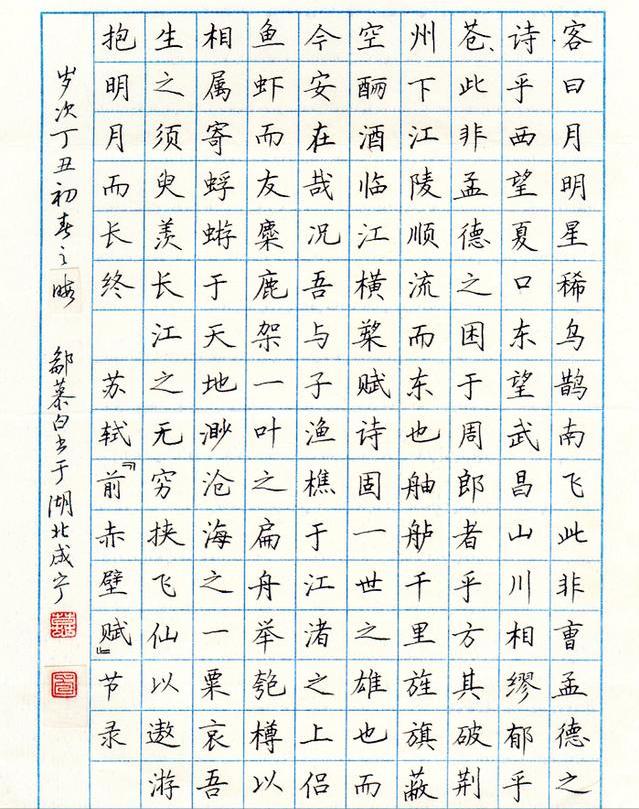 客曰月明星稀乌鹊南飞此非曹孟德之
诗乎西望夏口东望武昌山川相缪郁乎
苍、此非孟德之困于周郎者乎方其破荆
州下江陵顺流而东也舳舻千里旌旗蔽
空酾酒临江横槊赋诗固一世之雄也而
今安在哉况吾与子渔樵于江渚之上侣
鱼虾而友麋鹿架一叶之扁舟举匏樽以
相属寄蜉蝣于天地渺沧海之一粟哀吾
生之须臾羡长江之无穷挟飞仙以遨游
抱明月而长终 苏轼『前赤壁赋』节录
岁次丁丑初春之晦 鄒慕白书于湖北咸宁